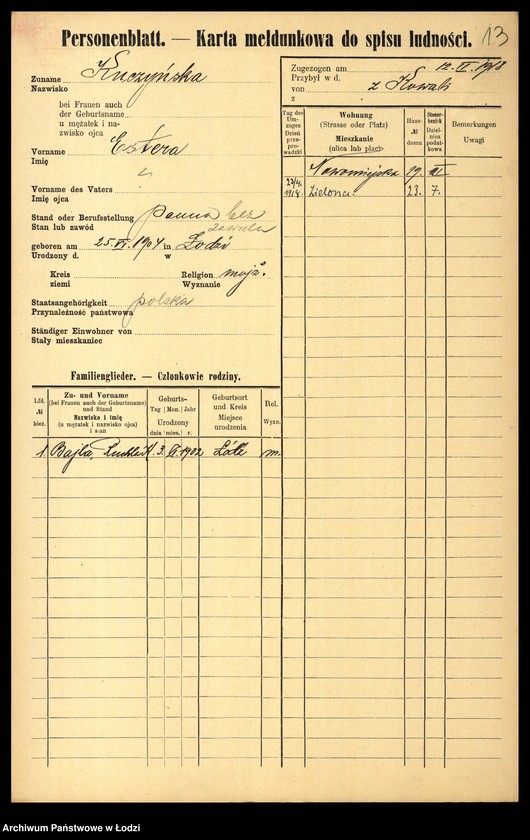 Personenblatt. — Karta meldunkowa do spisu ludności. 13
Zuname Kuczyńska
Nazwisko
bei Frauen auch
der Geburtsname
u mężatek i na-
zwisko ojca
Vorname Estera
Imię
Vorname des Vaters
Imię ojca
Stand oder Berufsstellung panna bez
Stan lub zawód zawodu
geboren am 25.VI.1904 in Łodzi
Urodzony d. w
Kreis Religion mojż.
ziemi Wyznanie
Staatsangehörigkeit polska
Przynależność państwowa
Ständiger Einwohner von
Stały mieszkaniec
Zugezogen am 12. VI. 1918
Przybył w d.
von z Kowali
z
Tag des Um-zuges Dzień prze-prowadzki
Wohnung (Strasse oder Platz) Mieszkanie (ulica lub plac)
Haus- № domu
Steuer-bezirk Dziel-nica podat-kowa
Bemerkungen Uwagi
Nowomiejska 19. VI.
1918. Zielona. 23. 7.
Familienglieder. — Członkowie rodziny.
Lfd. № bież.
Zu- und Vorname (bei Frauen auch der Geburtsname) und Stand Nazwisko i imię (u mężatek i nazwisko ojca) i stan
Geburts- Tag Mon. Jahr Urodzony dnia mies. r.
Geburtsort und Kreis Miejsce urodzenia
Rel. Wyzn.
1. Bajla, Ruchla 3. VI. 1902 Łódź m.
Archiwum Państwowe w Łodzi